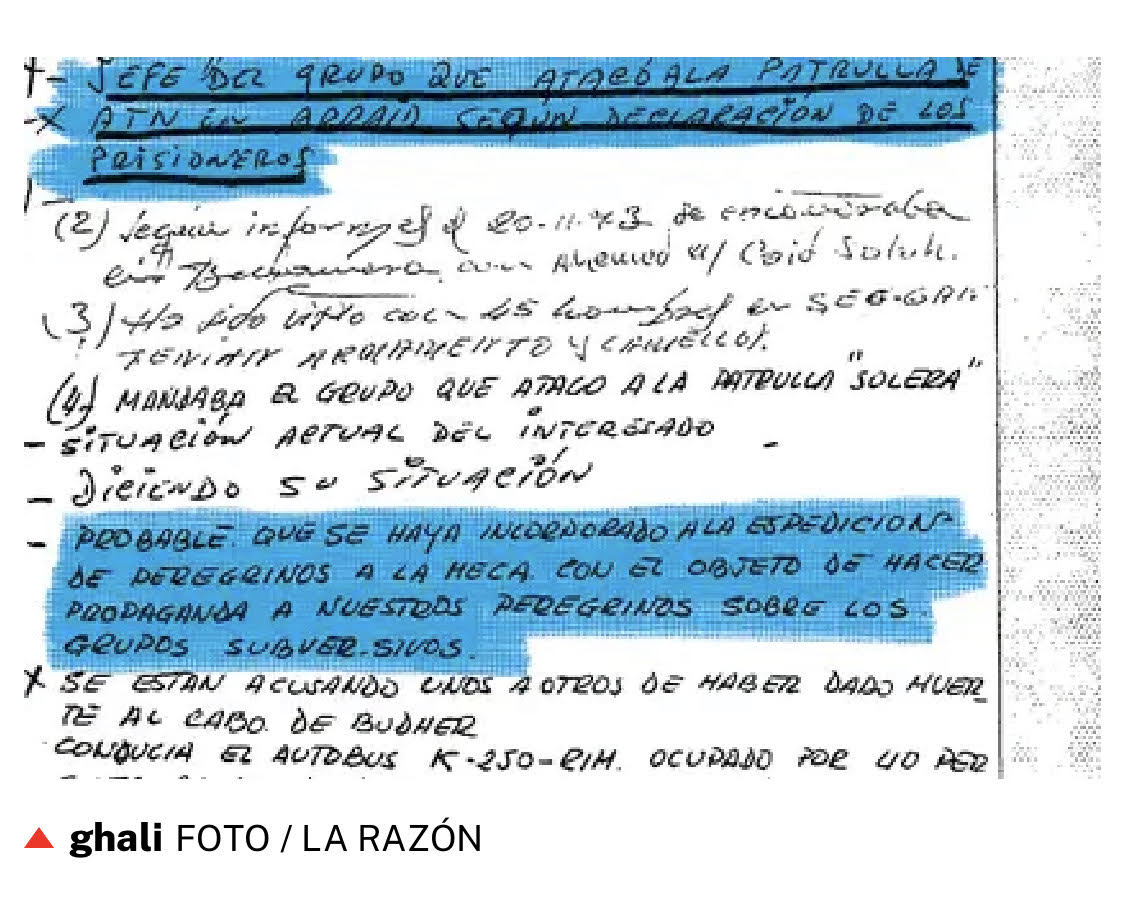 - JEFE DEL GRUPO QUE ATACÓ A LA PATRULLA DE
-X ATN EN ARRAID SEGÚN DECLARACIÓN DE LOS
PRISIONEROS
(2) Según informes el 20-11-73 se encontraba
en con Ahemed u/ Caid Saluh.
(3) Ha sido visto con 45 hombres en
TENIAN ARMAMENTO Y CAMELLOS.
(4) MANDABA EL GRUPO QUE ATACO A LA PATRULLA "SOLERA"
- SITUACIÓN ACTUAL DEL INTERESADO -
- DICIENDO SU SITUACIÓN
- PROBABLE QUE SE HAYA INCORPORADO A LA ESPEDICION
DE PEREGRINOS A LA MECA CON EL OBJETO DE HACER
PROPAGANDA A NUESTROS PEREGRINOS SOBRE LOS
GRUPOS SUBVER-SIVOS.
X SE ESTAN ACUSANDO UNOS A OTROS DE HABER DADO MUER
TE AL CABO DE BUDHER
CONDUCIA EL AUTOBUS K-250-RIM. OCUPADO POR 40 PER
ghali FOTO / LA RAZÓN